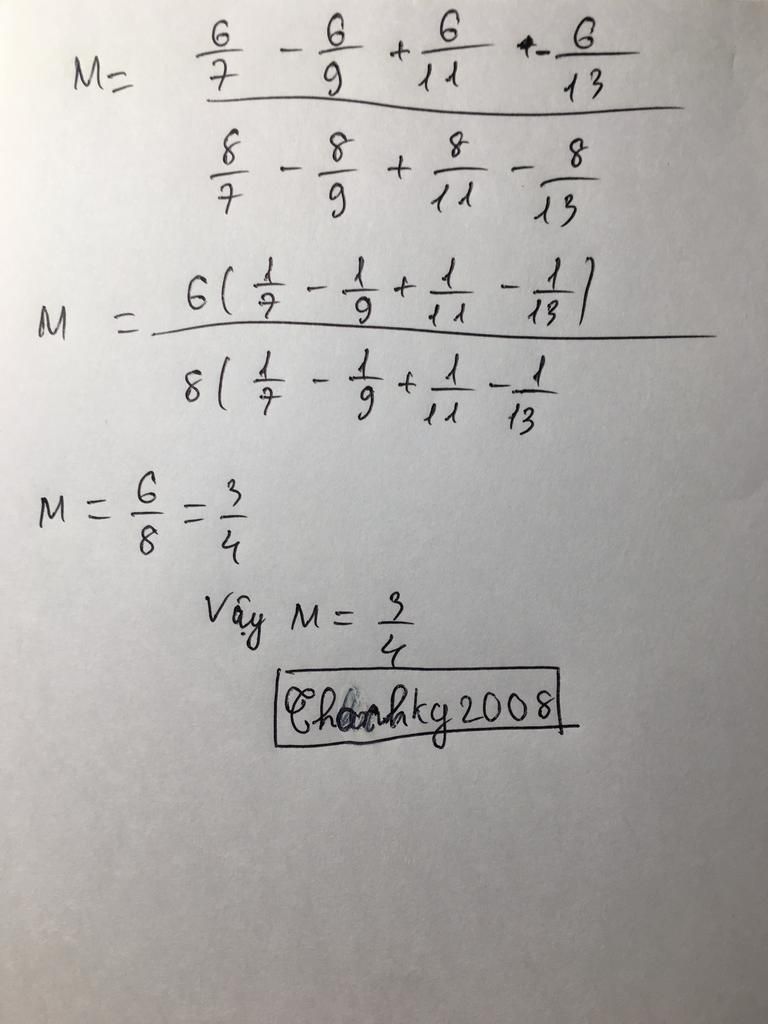 M = 6/7 - 6/9 + 6/11 - 6/13
8/7 - 8/9 + 8/11 - 8/13
M = 6(1/7 - 1/9 + 1/11 - 1/13)
8(1/7 - 1/9 + 1/11 - 1/13
M = 6/8 = 3/4
Vậy M = 3/4
Thanhkg2008